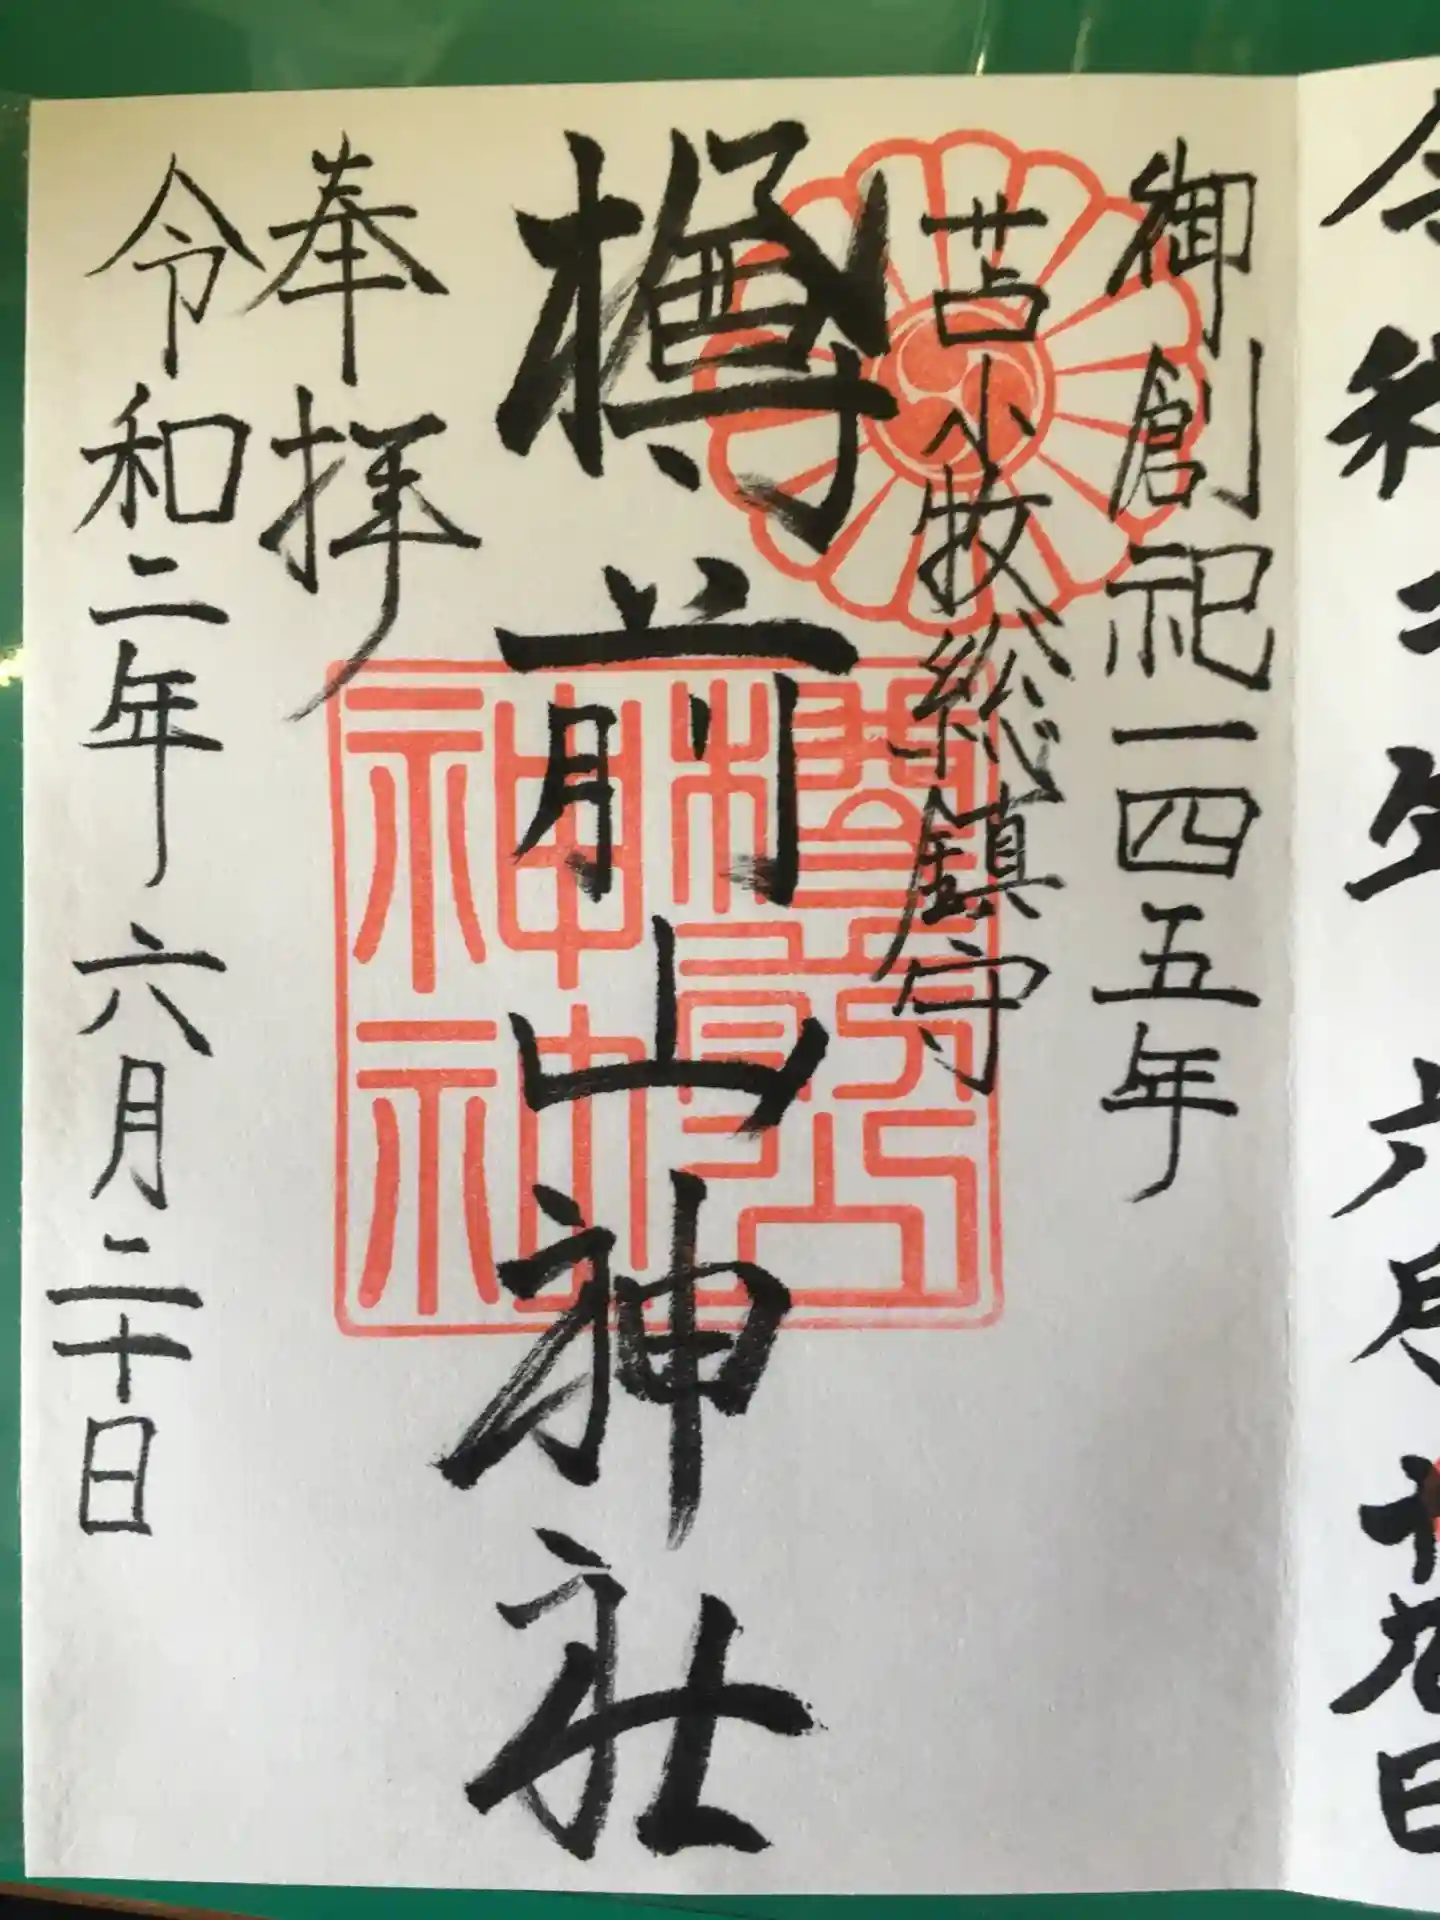 令和二年 六月十九日
御創祀一四五年
苫小牧総鎮守
樽前山神社
奉拝
令和二年六月二十日
樽前山
神社